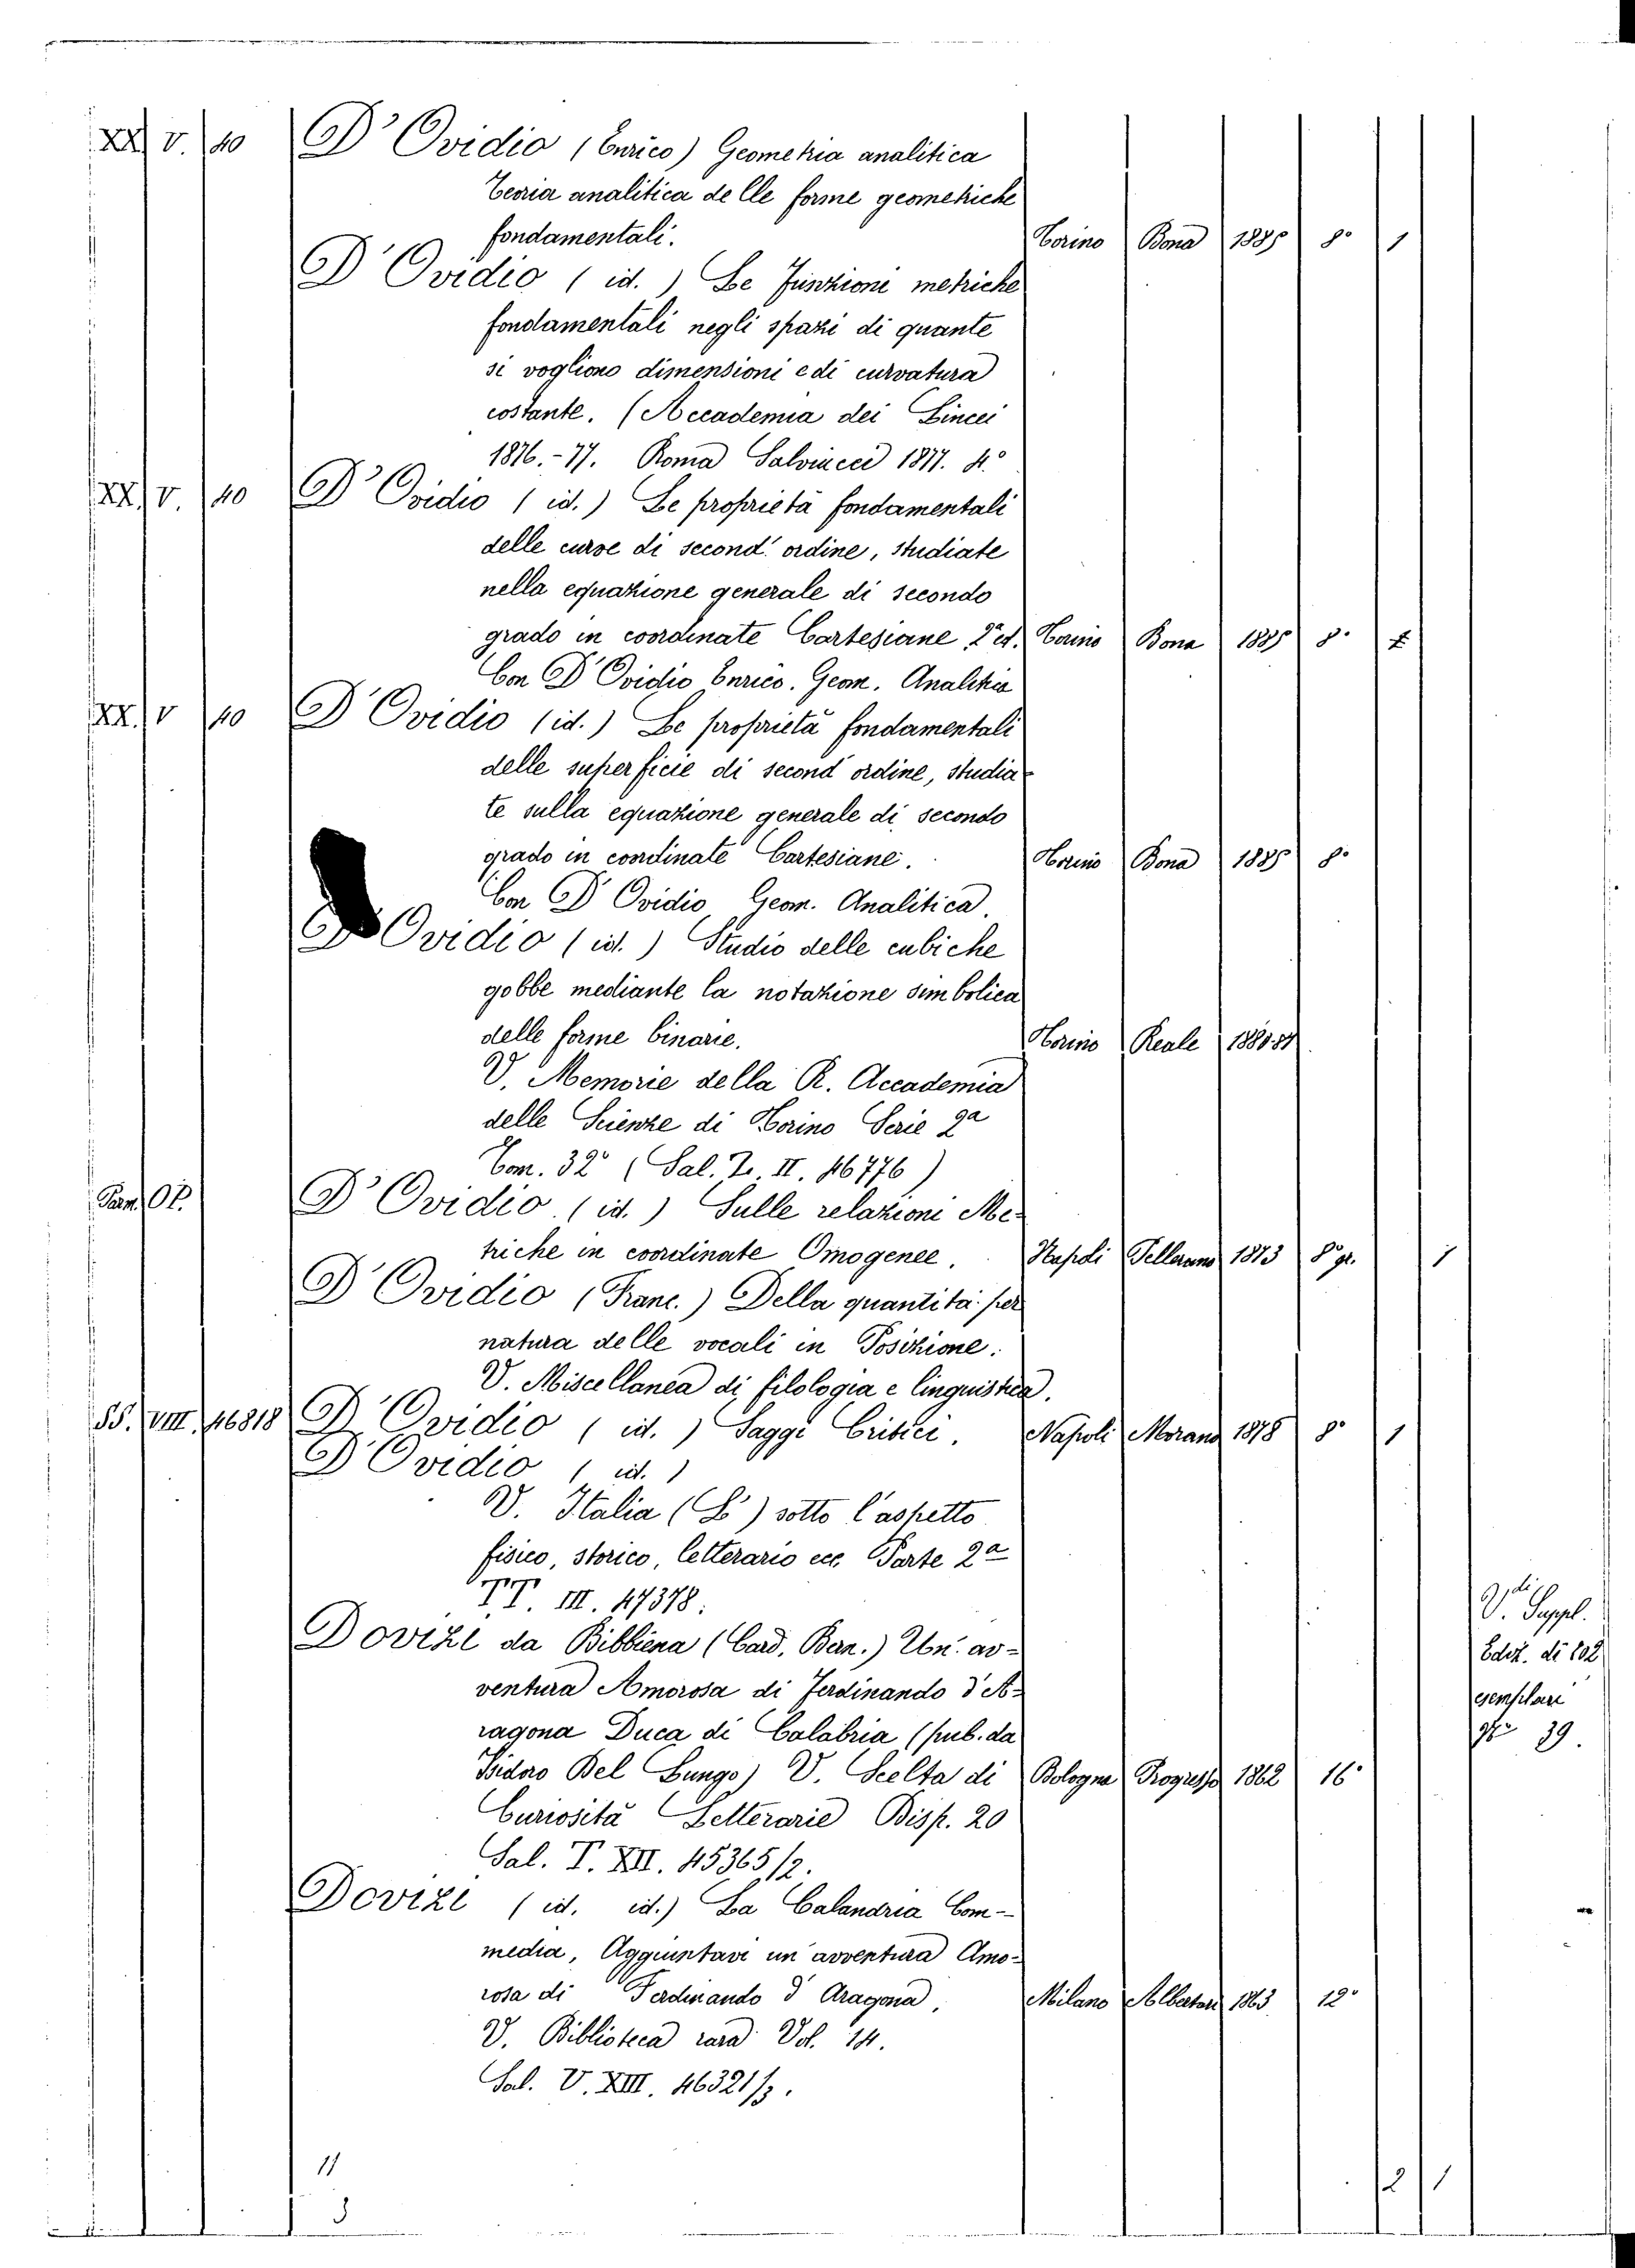 XX V. 40 D' Ovidio (Enrico) Geometria analitica
Teoria analitica delle forme geometriche
fondamentali. Torino Bona 1885 8° 1
D' Ovidio (id.) Le Funzioni metriche
fondamentali negli spazi di quante
si vogliono dimensioni e di curvatura
costante. (Accademia dei Lincei
1876.-77. Roma Salviucci 1877. 4.°
XX. V. 40 D' Ovidio (id.) Le proprietà fondamentali
delle curve di second' ordine, studiate
nella equazione generale di secondo
grado in coordinate Cartesiane 2ª ed. Torino Bona 1885 8°
Con D' Ovidio Enrico. Geom. Analitica
XX. V 40 D' Ovidio (id.) Le proprietà fondamentali
delle superficie di second' ordine, studia-
te sulla equazione generale di secondo
grado in coordinate Cartesiane. Torino Bona 1885 8°
Con D' Ovidio Geom. Analitica.
D' Ovidio (id.) Studio delle cubiche
gobbe mediante la notazione simbolica
delle forme binarie. Torino Reale
V. Memorie della R. Accademia
delle Scienze di Torino Serie 2ª
Tom. 32° (Sal. Z. II. 46776)
D' Ovidio. (id.) Sulle relazioni Me-
triche in coordinate Omogenee. Napoli Pellerano 1873 8° gr. 1
D' Ovidio (Franc.) Della quantità per
natura delle vocali in Posizione.
V. Miscellanea di filologia e linguistica.
SS. VIII. 46818 D' Ovidio (id.) Saggi Critici. Napoli Morano 1878 8° 1
D' Ovidio (id.)
V. Italia (L') sotto l'aspetto
fisico, storico, letterario ecc Parte 2ª
TT. III. 47378.
Dovizi da Bibbiena (Card. Bern.) Un' av-
ventura Amorosa di Ferdinando d'A-
ragona Duca di Calabria (pub. da
Isidoro Del Lungo) V. Scelta di Bologna Progresso 1862 16°
Curiosità Letterarie Disp. 20
Sal. T. XII. 45365/2.
Dovizi (id. id.) La Calandria Com-
media, Aggiuntavi un' avventura Amo-
rosa di Ferdinando d' Aragona, Milano 1863 12°
V. Biblioteca rara Vol. 14.
Sal. V. XIII. 46321/3.
V. Suppl.
Ediz. di 102
esemplari
N° 39.
11
3
2 1